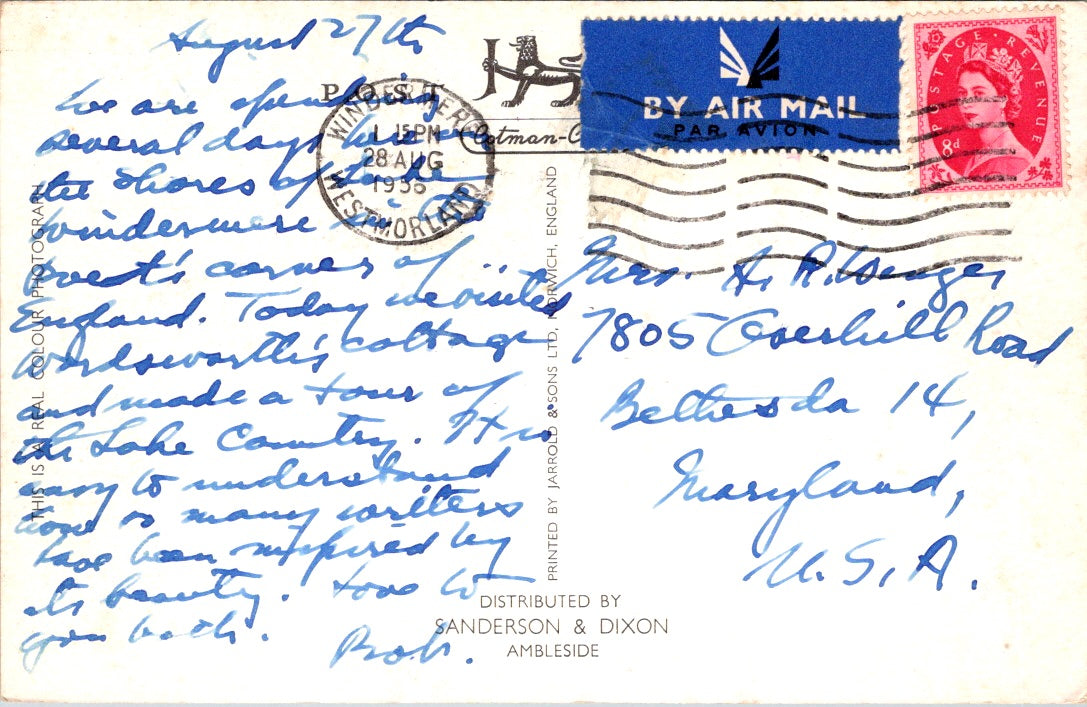 August 27th
We are spending
several days here on
the shores of Lake
Windermere in the
poet's corner of
England. Today we visited
Wordsworth's cottage
and made a tour of
the Lake Country. It is
easy to understand
how so many writers
have been inspired by
its beauty. Love to
you both.
Bob.
POST
WINDERMERE
1 15PM
28 AUG
1956
WESTMORLAND
BY AIR MAIL
PAR AVION
POSTAGE REVENUE
8d
Mrs. A. R.
7805 Overhill Road
Bethesda 14,
Maryland,
U.S.A.
THIS IS A REAL COLOUR PHOTOGRAPH
PRINTED BY JARROLD & SONS LTD, NORWICH, ENGLAND
DISTRIBUTED BY
SANDERSON & DIXON
AMBLESIDE